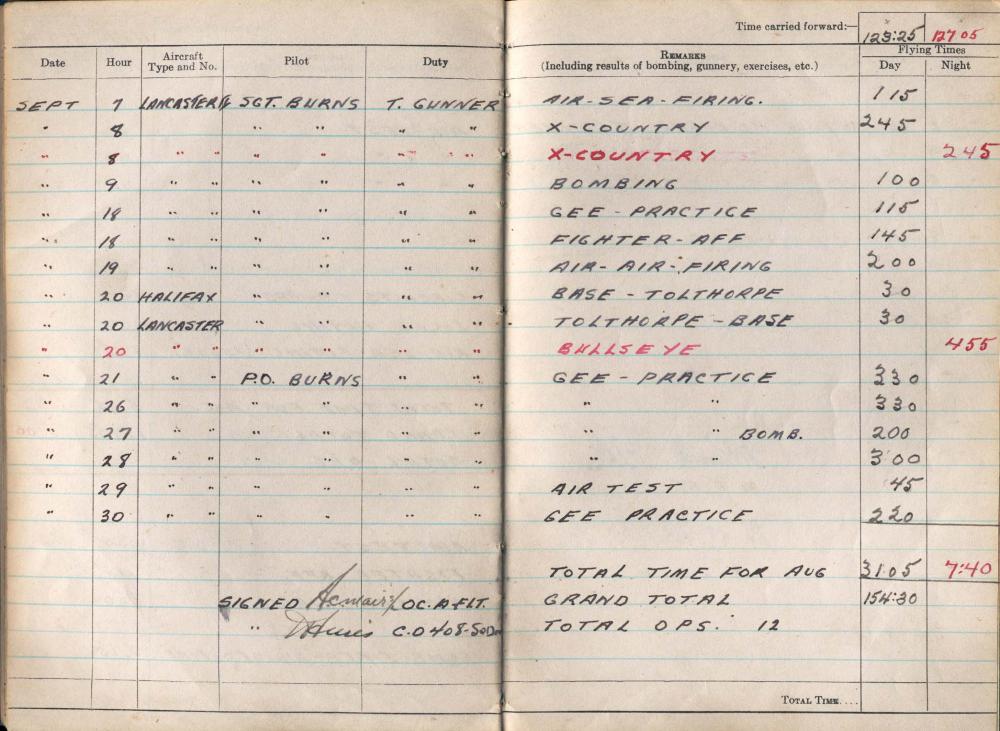 Time carried forward:— 123:25 127 05
Date Hour Aircraft Type and No. Pilot Duty REMARKS (Including results of bombing, gunnery, exercises, etc.) Flying Times Day Night
SEPT 7 LANCASTER SGT. BURNS T. GUNNER AIR-SEA-FIRING. 115
" 8 " " " " X-COUNTRY 245
" 8 " " " " " " X-COUNTRY 245
" 9 " " " " " " BOMBING 100
" 18 " " " " " " GEE-PRACTICE 115
" 18 " " " " " " FIGHTER-AFF 145
" 19 " " " " " " AIR-AIR-FIRING 200
" 20 HALIFAX " " " " BASE-TOLTHORPE 30
" 20 LANCASTER " " " " TOLTHORPE-BASE 30
" 20 " " " " " " BULLSEYE 455
" 21 " " P.O. BURNS " " GEE-PRACTICE 330
" 26 " " " " " " " " 330
" 27 " " " " " " " " BOMB. 200
" 28 " " " " " " " " 300
" 29 " " " " " " AIR TEST 45
" 30 " " " " " " GEE PRACTICE 220
TOTAL TIME FOR AUG 31.05 7:40
SIGNED OC. A FLT. GRAND TOTAL 154:30
" C.O 408-SQDN TOTAL OPS. 12
TOTAL TIME....